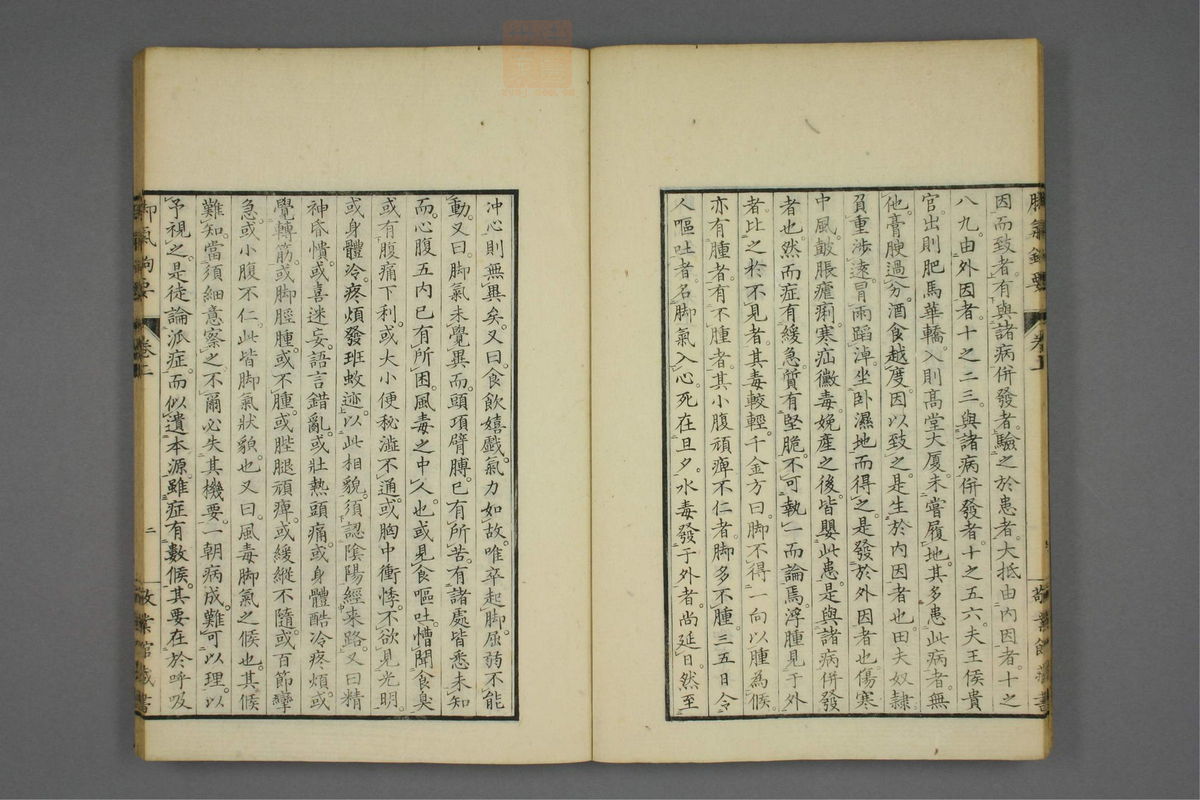 脚氣鉤要
卷上
敬業館藏書
因而致者。有與諸病併發者。驗之於患者。大抵由內因者。十之
八九。由外因者。十之二三。與諸病併發者。十之五六。夫王侯貴
官。出則肥馬華轎。入則高堂大厦。未嘗履地。其多患此病者。無
他。膏腴過分。酒食越度。因以致之。是生於內因者也。田夫奴隷
負重涉遠。冒雨蹈淖。坐卧濕地而得之。是發於外因者也。傷寒
中風鼓脹瘧痢寒疝黴毒娩產之後。皆嬰此患。是與諸病併發
者也。然而症有緩急。質有堅脆。不可執一而論焉。浮腫見于外
者。比之於不見者。其毒較輕。千金方曰。脚不得一向以腫為候。
亦有腫者。有不腫者。其小腹頑痺不仁者。脚多不腫。三五日令
人嘔吐者。名脚氣入心。死在旦夕。水毒發于外者。尚延日。然至
冲心則無異矣。又曰。食飲嬉戲氣力如故。唯卒起脚屈弱不能
動。又曰。脚氣未覺異。而頭項臂膊已有所苦。有諸處皆悉未知
而心腹五內已有所困。風毒之中人也。或見食嘔吐。憎聞食臭
或有腹痛下利。或大小便秘澁不通。或胸中衝悸。不欲見光明。
或身體冷疼煩發班蚊迹。以此相貌。須認陰陽經來路。又曰精
神昏憒。或喜迷妄。語言錯亂。或壮熱頭痛。或身體酷冷疼煩。或
覺轉筋。或脚脛腫。或不腫。或䏶腿頑痺。或緩縱不隨。或百節攣
急。或小腹不仁。此皆脚氣狀貌也。又曰。風毒脚氣之候也。其候
難知。當須細意察之。不爾必失其機要。一朝病成。難可以理。以
予視之。是徒論派症。而似遺本源。雖症有數候。其要在於呼吸
脚氣鉤要
卷上
二
敬業館藏書